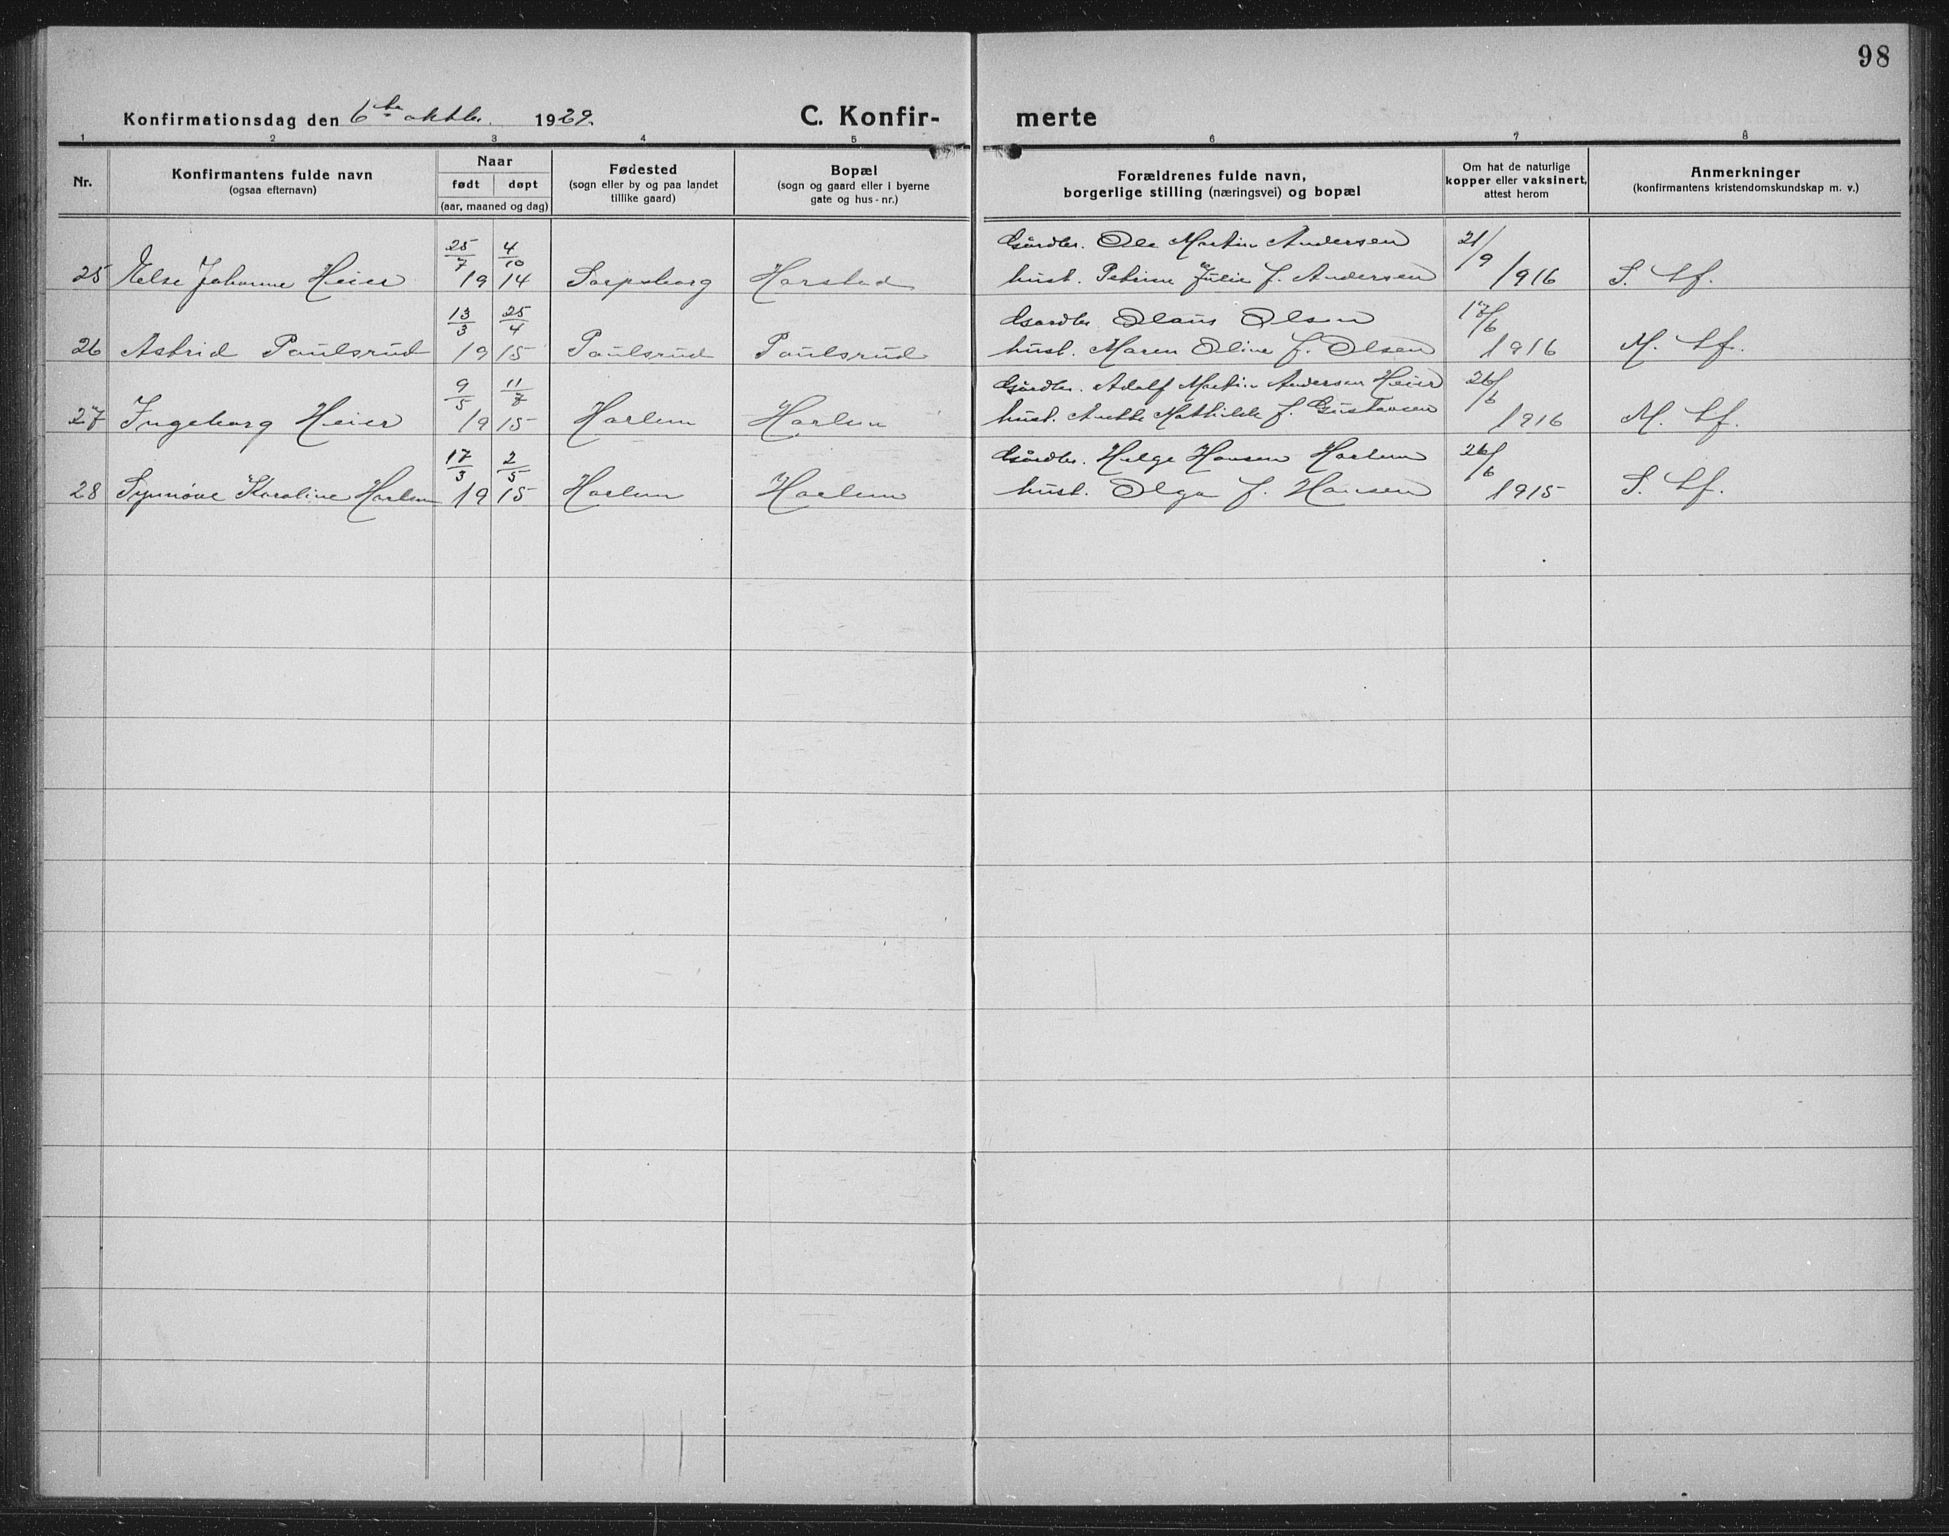 98
Konfirmationsdag den 6te oktbr. 1929.
C. Konfir- merte
1 2 3 4 5 6 7 8
Nr. Konfirmantens fulde navn (ogsaa efternavn) Naar født døpt (aar, maaned og dag) Fødested (sogn eller by og paa landet tillike gaard) Bopæl (sogn og gaard eller i byerne gate og hus-nr.) Forældrenes fulde navn, borgerlige stilling (næringsvei) og bopæl Om hat de naturlige kopper eller vaksinert, attest herom Anmerkninger (konfirmantens kristendomskundskap m. v.)
25/7 4/10 Gårdbr. Ole Martin Andersen 21/9
25 Else Johanne Heier 19 14 Sarpsborg Harstad hust. Petrine Julie f. Andersen /1916 S. tf.
13/3 25/4 Gardbr. Olaus Olsen 17/6
26 Astrid Paulsrud 19 15 Paulsrud Paulsrud hust. Maren Oline f. Olsen 1916 M. tf.
9/5 11/7 Gårdbr. Adolf Martin Andersen Heier 26/6
27 Ingeborg Heier 19 15 Harlem Harlem hust. Anette Mathilde f. Gustavsen 1916 M. tf.
17/3 2/5 Gårdbr. Helge Hansen Harlem 26/6
28 Synnøve Karoline Harlem 19 15 Harlem Harlem hust. Olga f. Hansen 1915 S. tf.